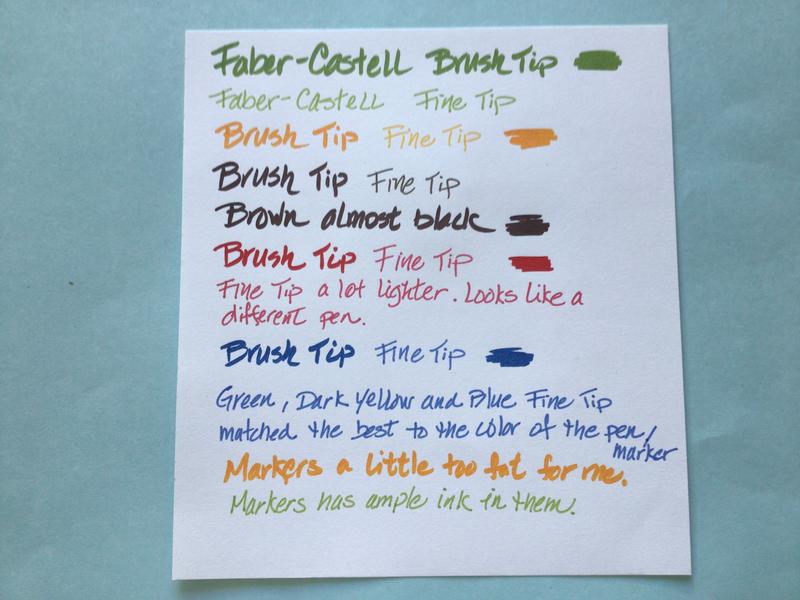 Faber-Castell Brush Tip
Faber-Castell Fine Tip
Brush Tip Fine Tip
Brush Tip Fine Tip
Brown almost black
Brush Tip Fine Tip
Fine Tip a lot lighter. Looks like a
different pen.
Brush Tip Fine Tip
Green, Dark Yellow and Blue Fine Tip
matched the best to the color of the pen/
marker
Markers a little too fat for me.
Markers has ample ink in them.